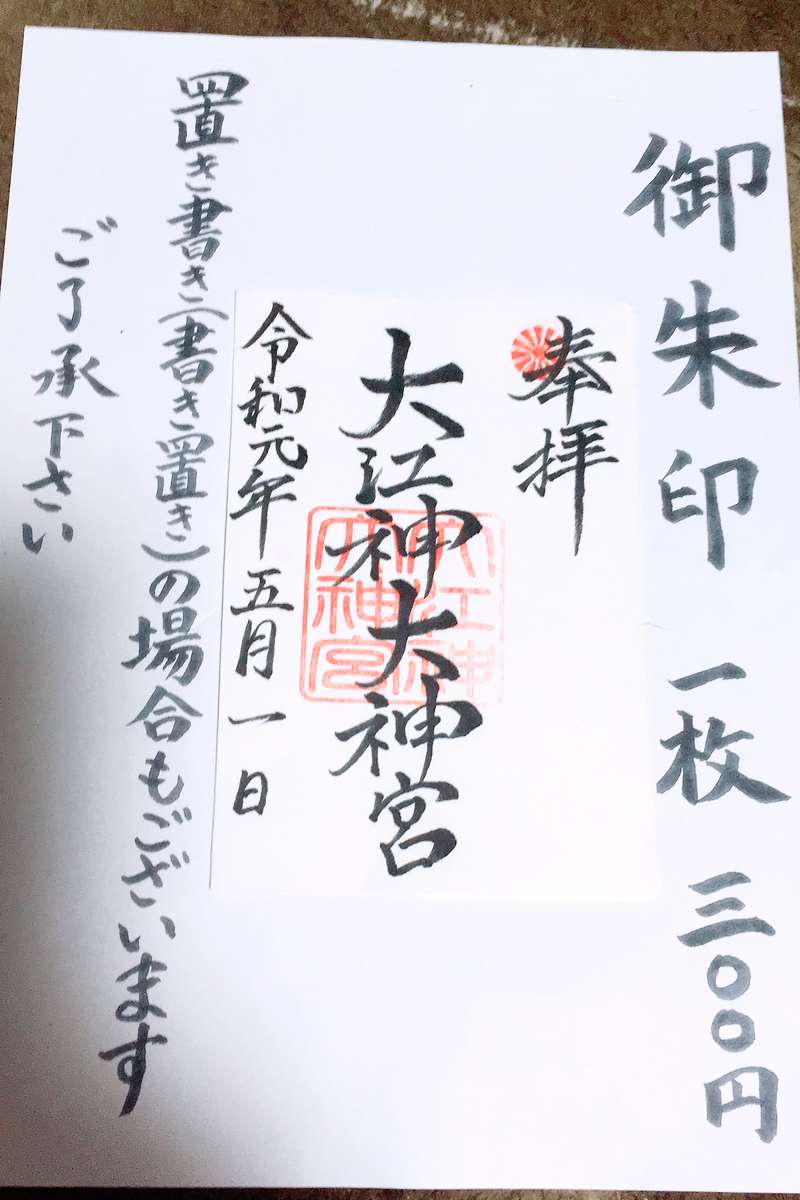 御朱印 一枚 三〇〇円
奉拝
大江神大神宮
令和元年五月一日
置き書き(書き置き)の場合もございます
ご了承下さい